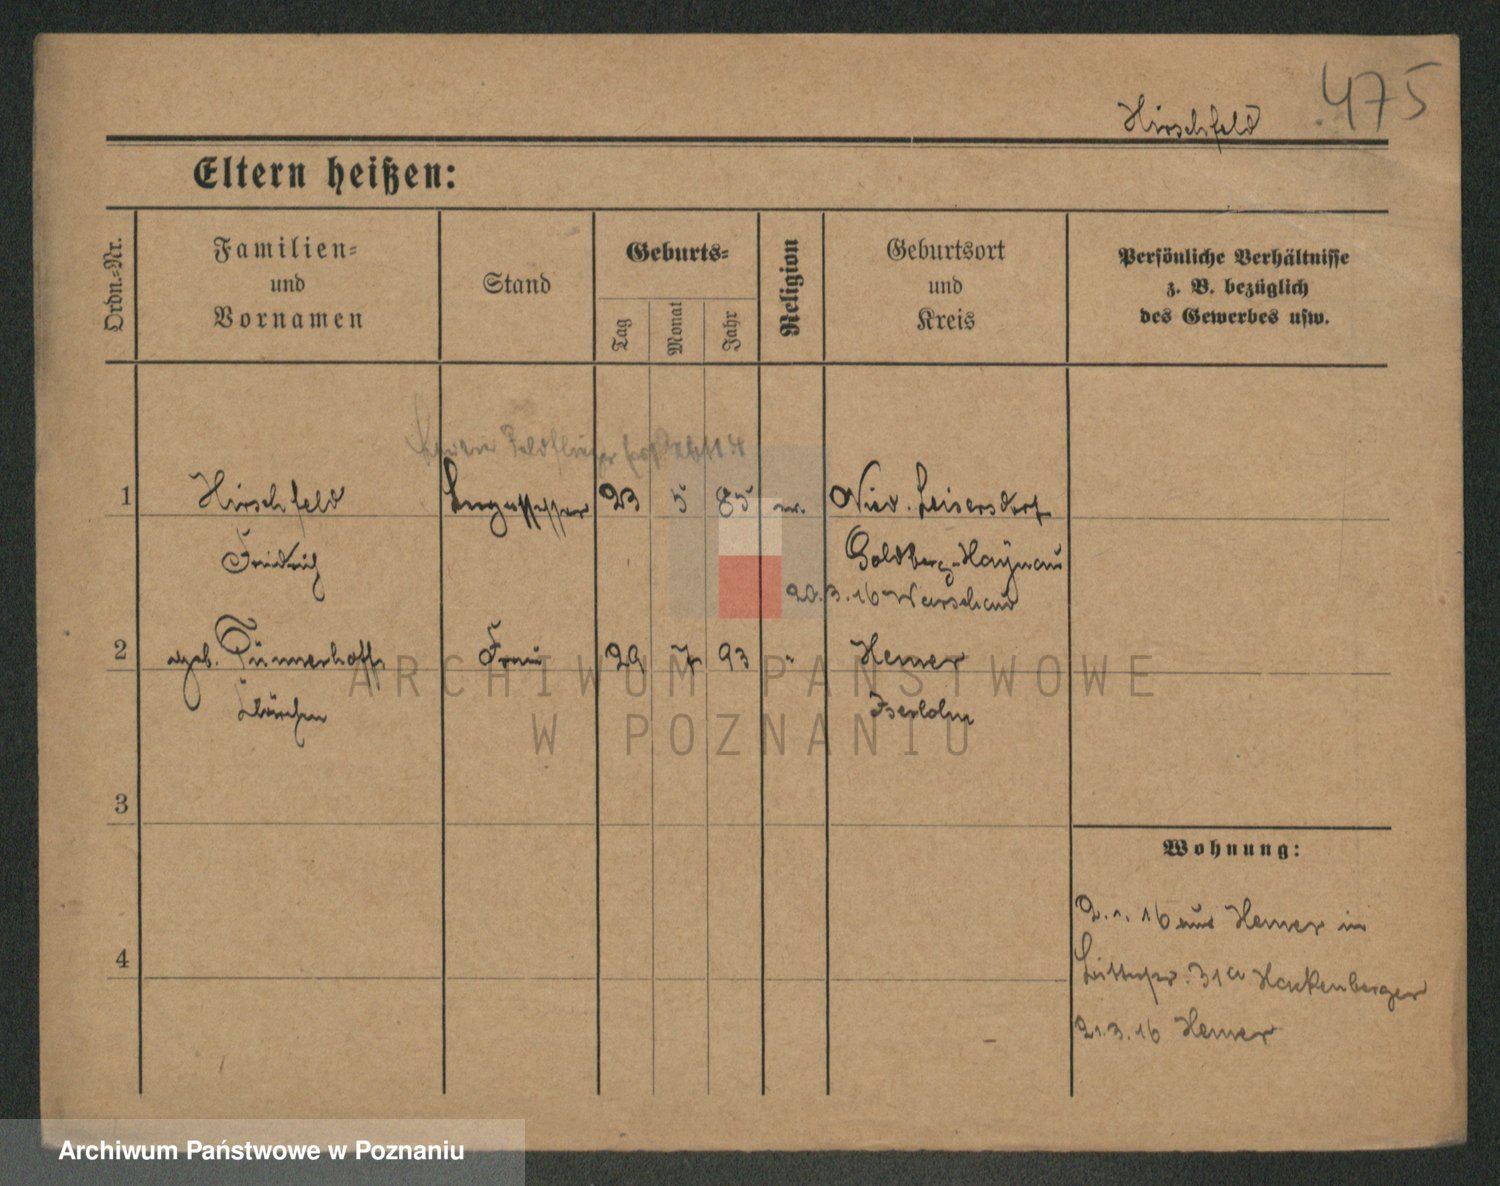 475
Hirschfeld
Eltern heißen:
Ordn.-Nr.
Familien-
und
Vornamen
Stand
Geburts-
Tag
Monat
Jahr
Religion
Geburtsort
und
Kreis
Persönliche Verhältnisse
z. B. bezüglich
des Gewerbes usw.
1 Hirschfeld 23 5 85 ev. Nied. Leisersdorf
Friedrich Goldberg-Haynau
20.3.16 Warschau
2 geb. Frau 29 7 93 " Hemer
Klärchen Iserlohn
3
4
Wohnung:
2.1.16 aus Hemer in
31a Hackenberger
21.3.16 Hemer
ARCHIWUM PAŃSTWOWE
W POZNANIU
Archiwum Państwowe w Poznaniu